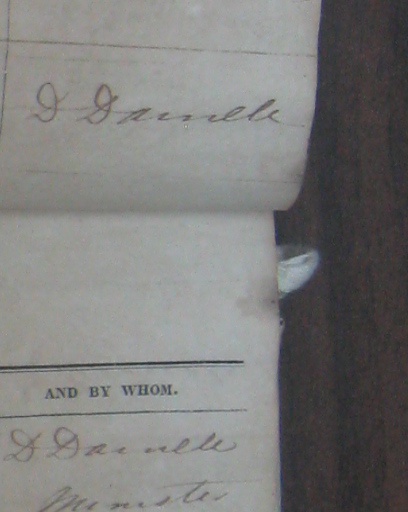 D Darnelle
AND BY WHOM.
D Darnelle
Minister